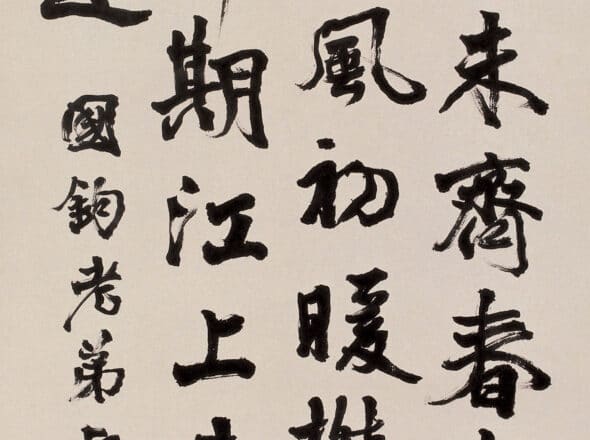 未齊春
風初暖
期江上
國鈞老弟